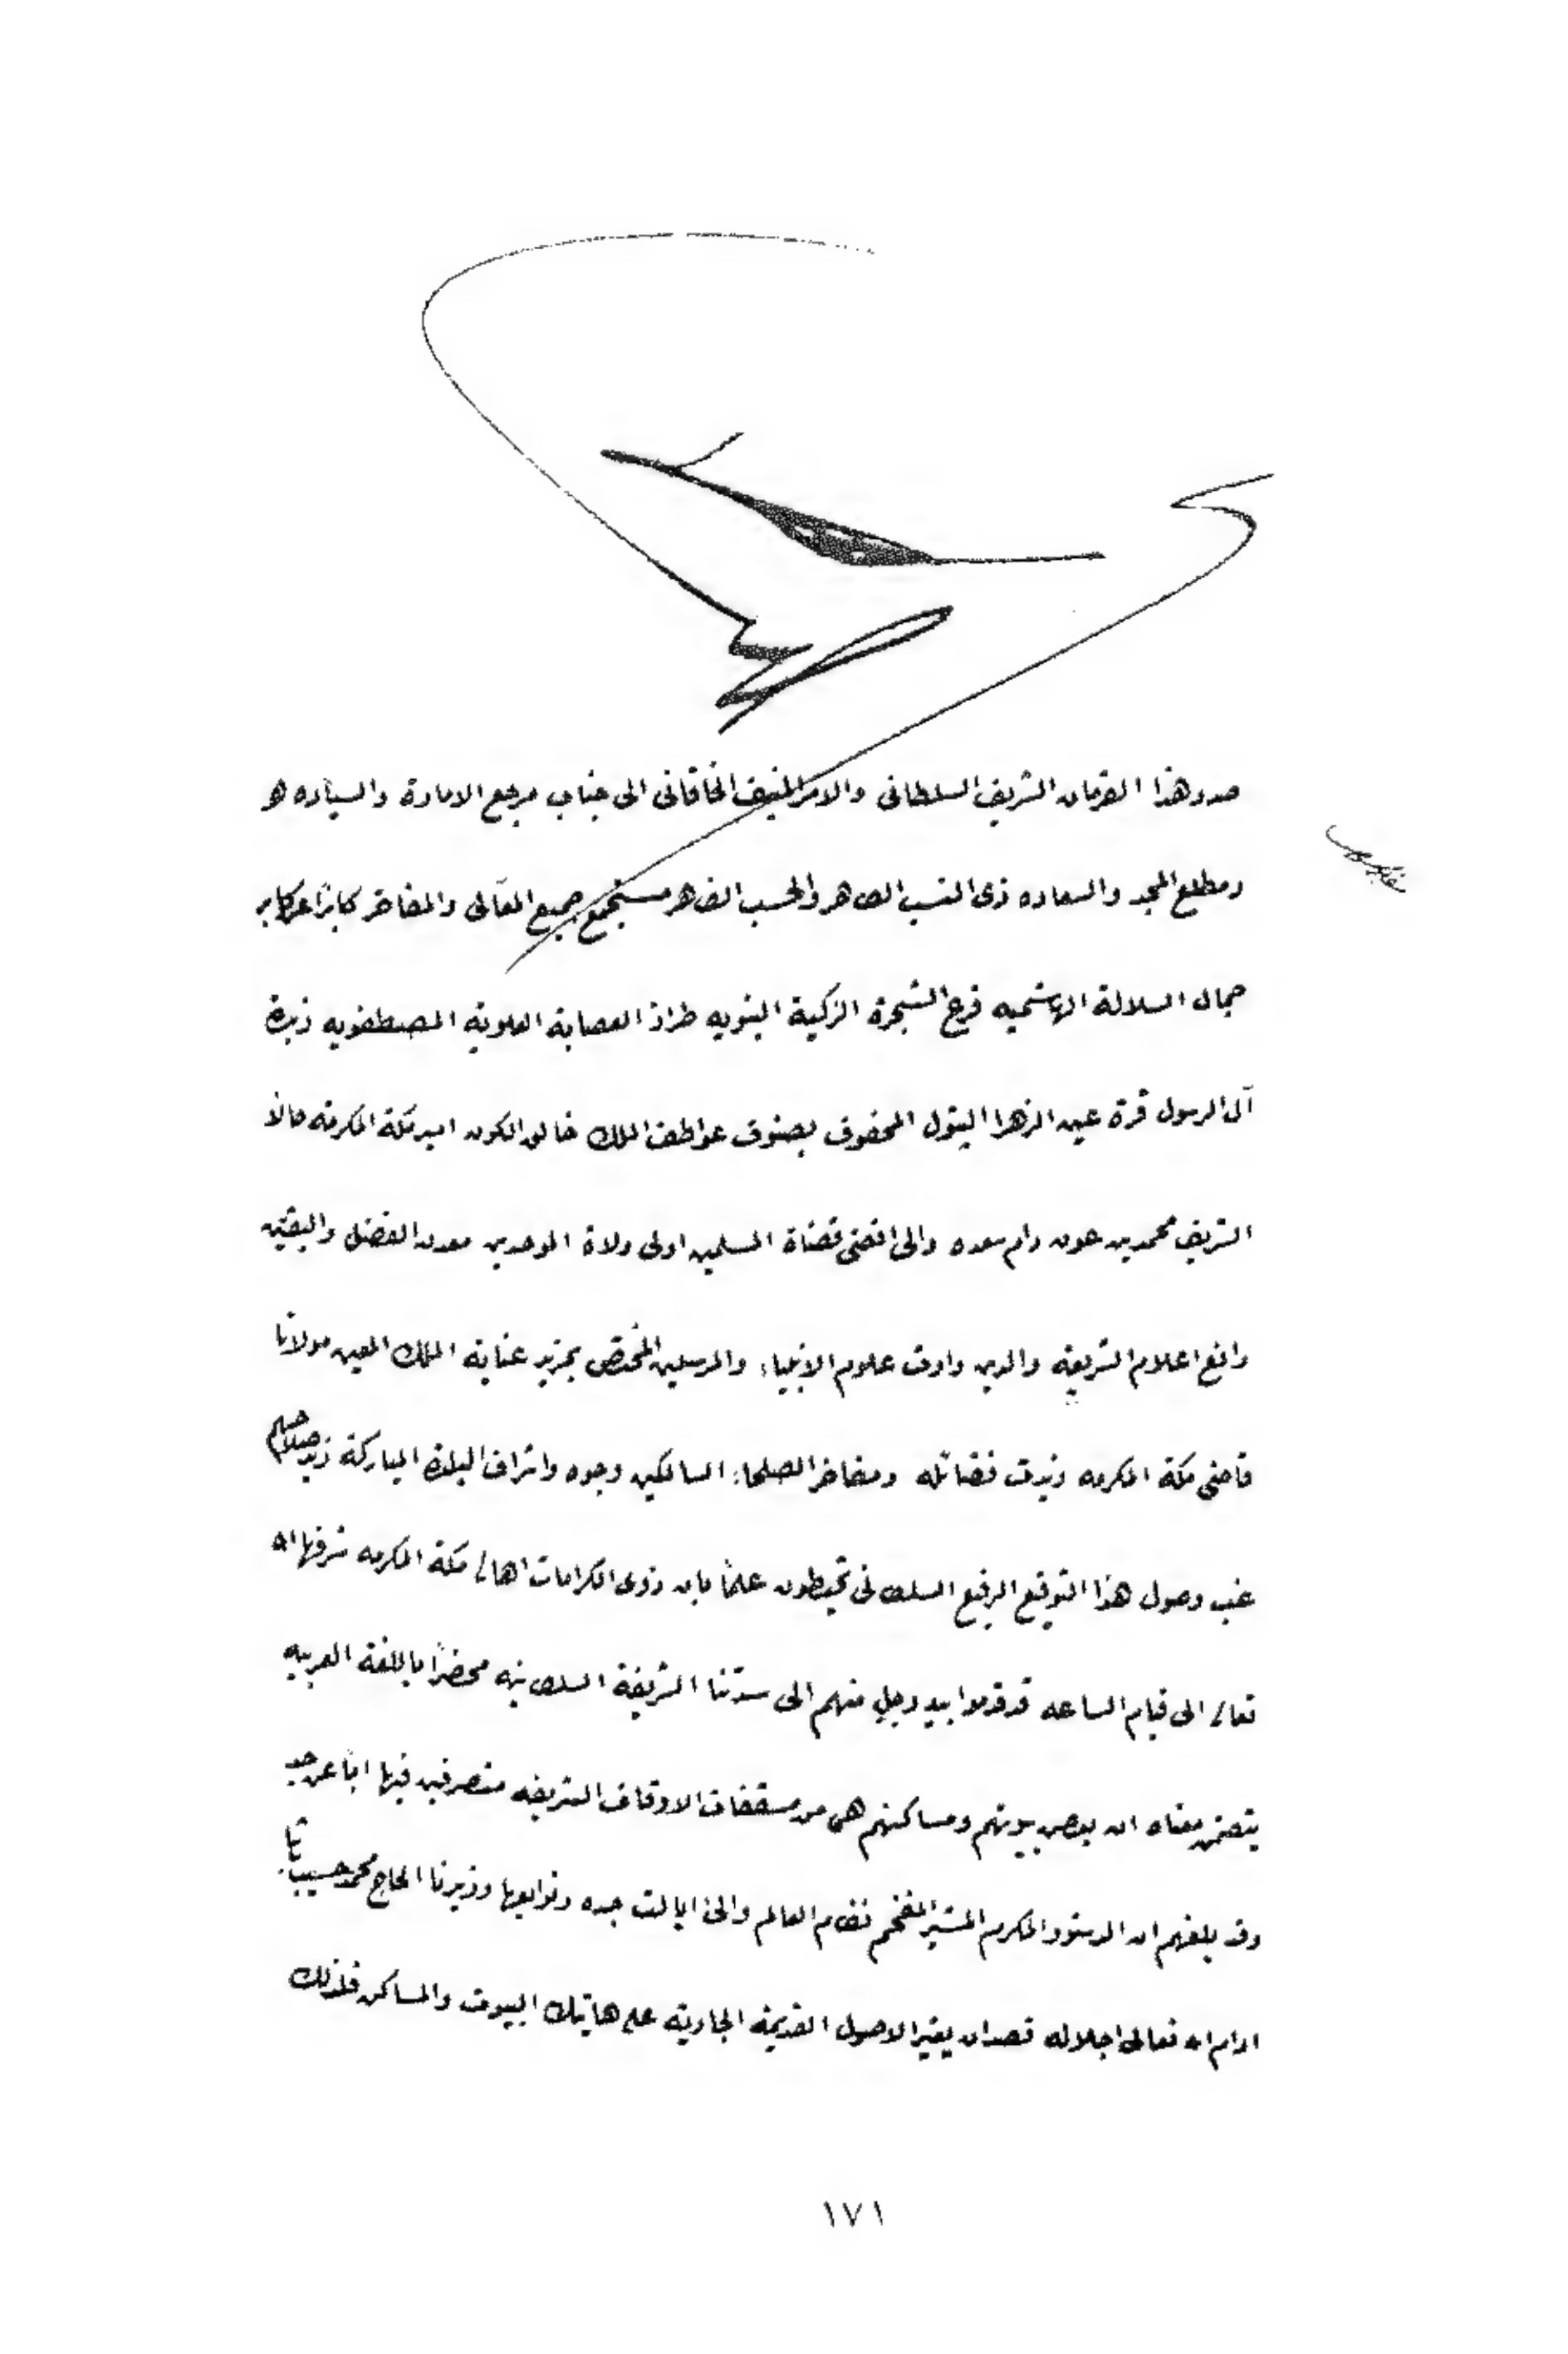 صدر هذا الفرمان الشريف السلطانى والامر المنيف الخاقانى الى جناب مرجع الامارة والسياده هو
ومطلع المجد والسعاده ذى النسب الطاهر والحسب الظاهر مستجمع جميع المعآلى والمفاخر كابرًا عن كابر
جمال السلالة الهاشميه فرع الشجرة الزكية النبويه طراز العصابة العلوية المصطفويه زبدة
آل الرسول قرة عين الزهرا البتول المحفوف بصنوف عواطف الملك خالق الكون امير مكة المكرمه حالا
الشريف محمد بن عون دام سعده والى اقضى قضاة المسلمين اولى ولاة الموحدين معدن الفضل واليقين
رافع اعلام الشريعة والدين وارث علوم الانبياء والمرسلين المختص بمزيد عناية الملك المعين مولانا
قاضى مكة المكرمه زيدت فضائله ومفاخر الصلحاء السالكين وجوه واشراف البلدة المباركة زيد صلاحهم
غب وصول هذا التوقيع الرفيع السلطانى تحيطون علمًا بان ذوى الكرامات اهالى مكة المكرمه شرفها الله
تعالى الى قيام الساعه قد قدموا بيد رجل منهم الى سدتنا الشريفة السلطانيه محضرًا باللغة العربيه
يتضمن معناه ان بعض بيوتهم ومساكنهم هى من مسقفات الاوقاف الشريفه متصرفين فيها ابًا عن جد
وقد بلغهم ان الدستور المكرم المشير المفخم نظام العالم والى ايالت جده وتوابعها وزيرنا الحاج محمد حسيب باشا
ادام الله تعالى اجلاله قصد ان يغير الاصول القديمة الجارية على هاتيك البيوت والمساكن فلذلك
١٧١